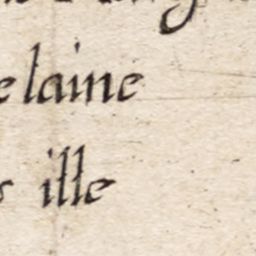 elaine
s ille